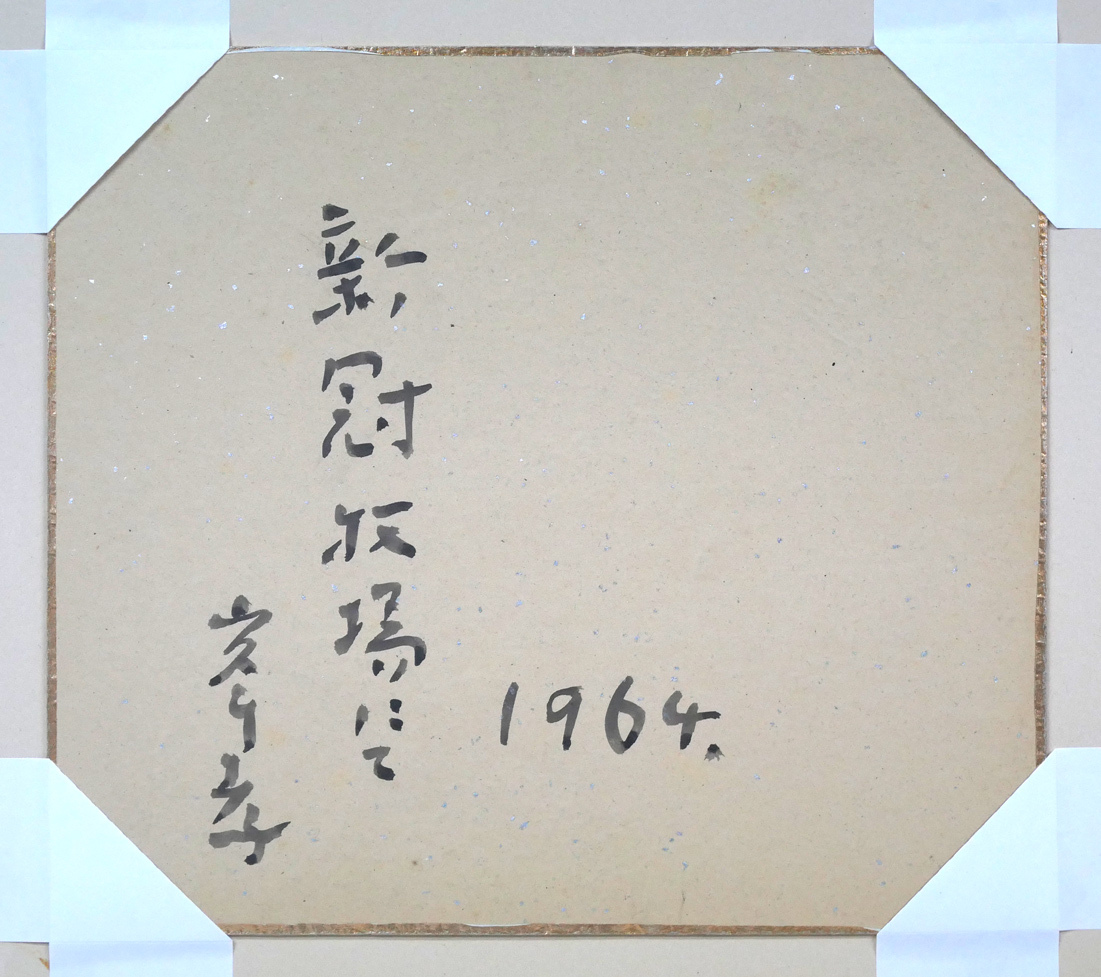 1964.
新冠牧場にて